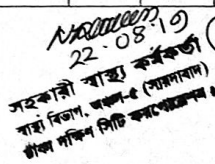 22.08.19
সহকারী স্বাস্থ্য কর্মকর্তা
স্বাস্থ্য বিভাগ, অঞ্চল-৫ (সায়েদাবাদ)
ঢাকা দক্ষিণ সিটি কর্পোরেশন